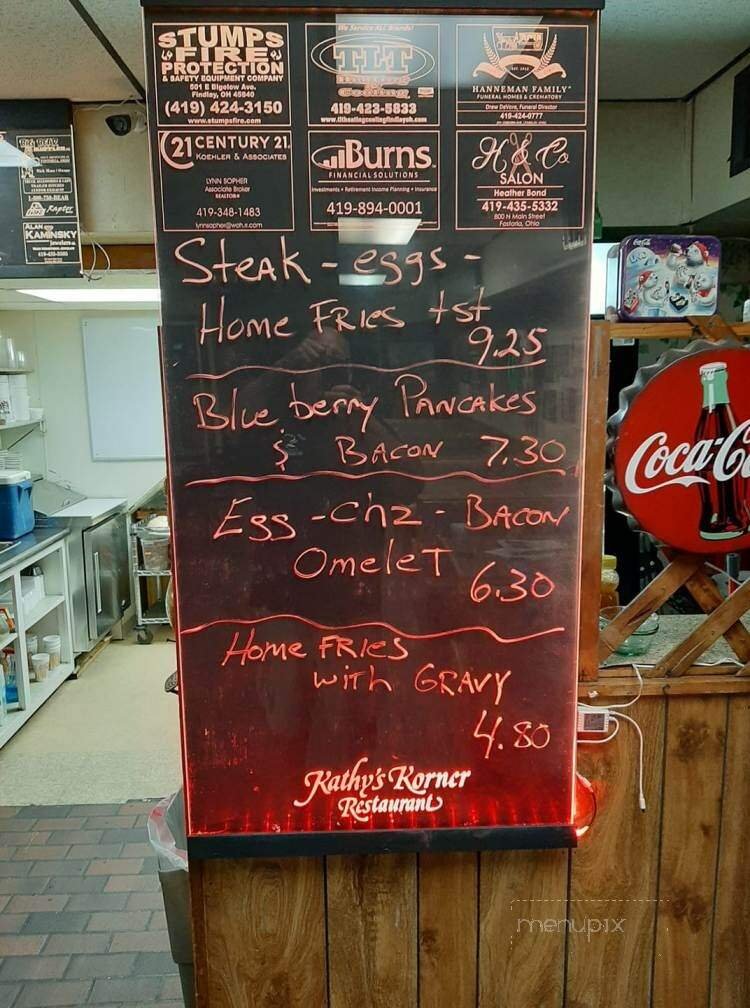 STUMPS
FIRE
PROTECTION
& SAFETY EQUIPMENT COMPANY
501 E Bigelow Ave.
Findlay, OH 45840
(419) 424-3150
www.stumpsfire.com
We Service ALL Brands!
TLT
Cooling
419-423-5833
HANNEMAN FAMILY
FUNERAL HOMES & CREMATORY
Drew DeVore, Funeral Director
419-424-0777
21 CENTURY 21.
KOEHLER & ASSOCIATES
LYNN SOPHER
Associate Broker
REALTOR®
419-348-1483
Burns
FINANCIAL SOLUTIONS
Investments • Retirement Income Planning • Insurance
419-894-0001
H & Co
SALON
Heather Bond
419-435-5332
800 N Main Street
Fostoria, Ohio
ALAN
KAMINSKY
jewelers
Steak - eggs -
Home FRIES tst
9.25
Blue berry PANCAKES
$ BACON 7.30
Egg - chz - BACON
OmeleT
6.30
Home FRIES
with GRAVY
4.80
Kathy's Korner
Restaurant
Coca-C
menupix